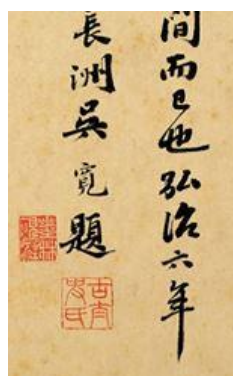 間而已也弘治六年
長洲吳寬題